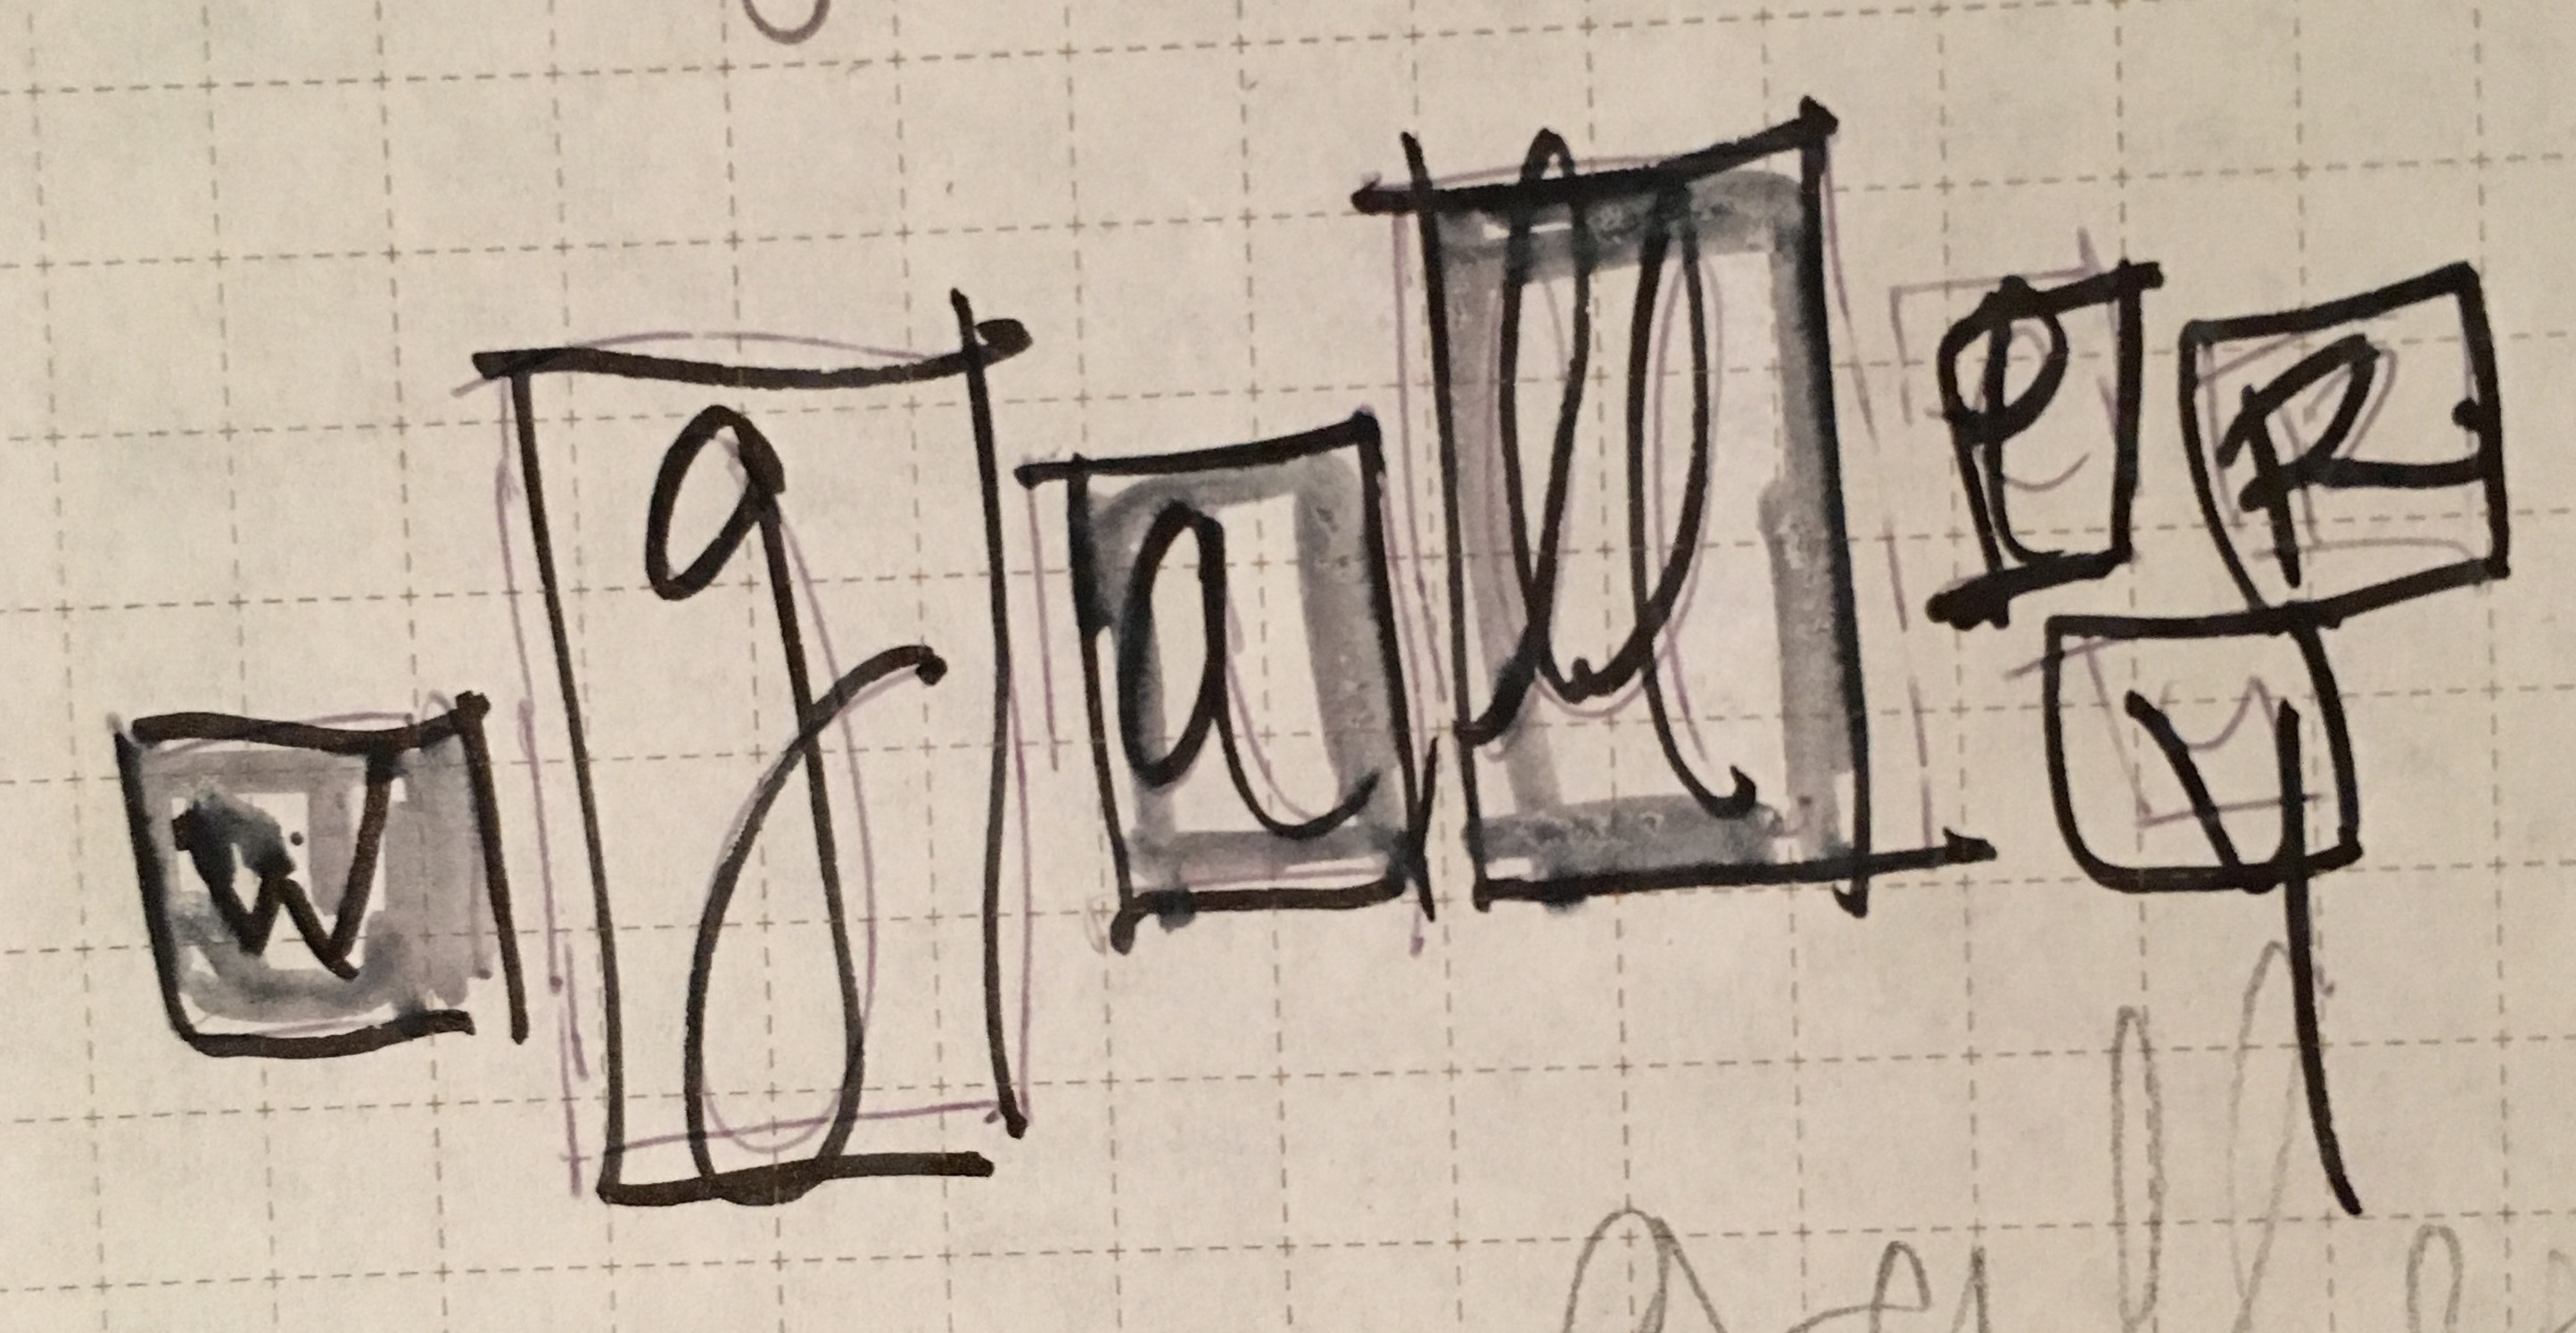 w galleRy